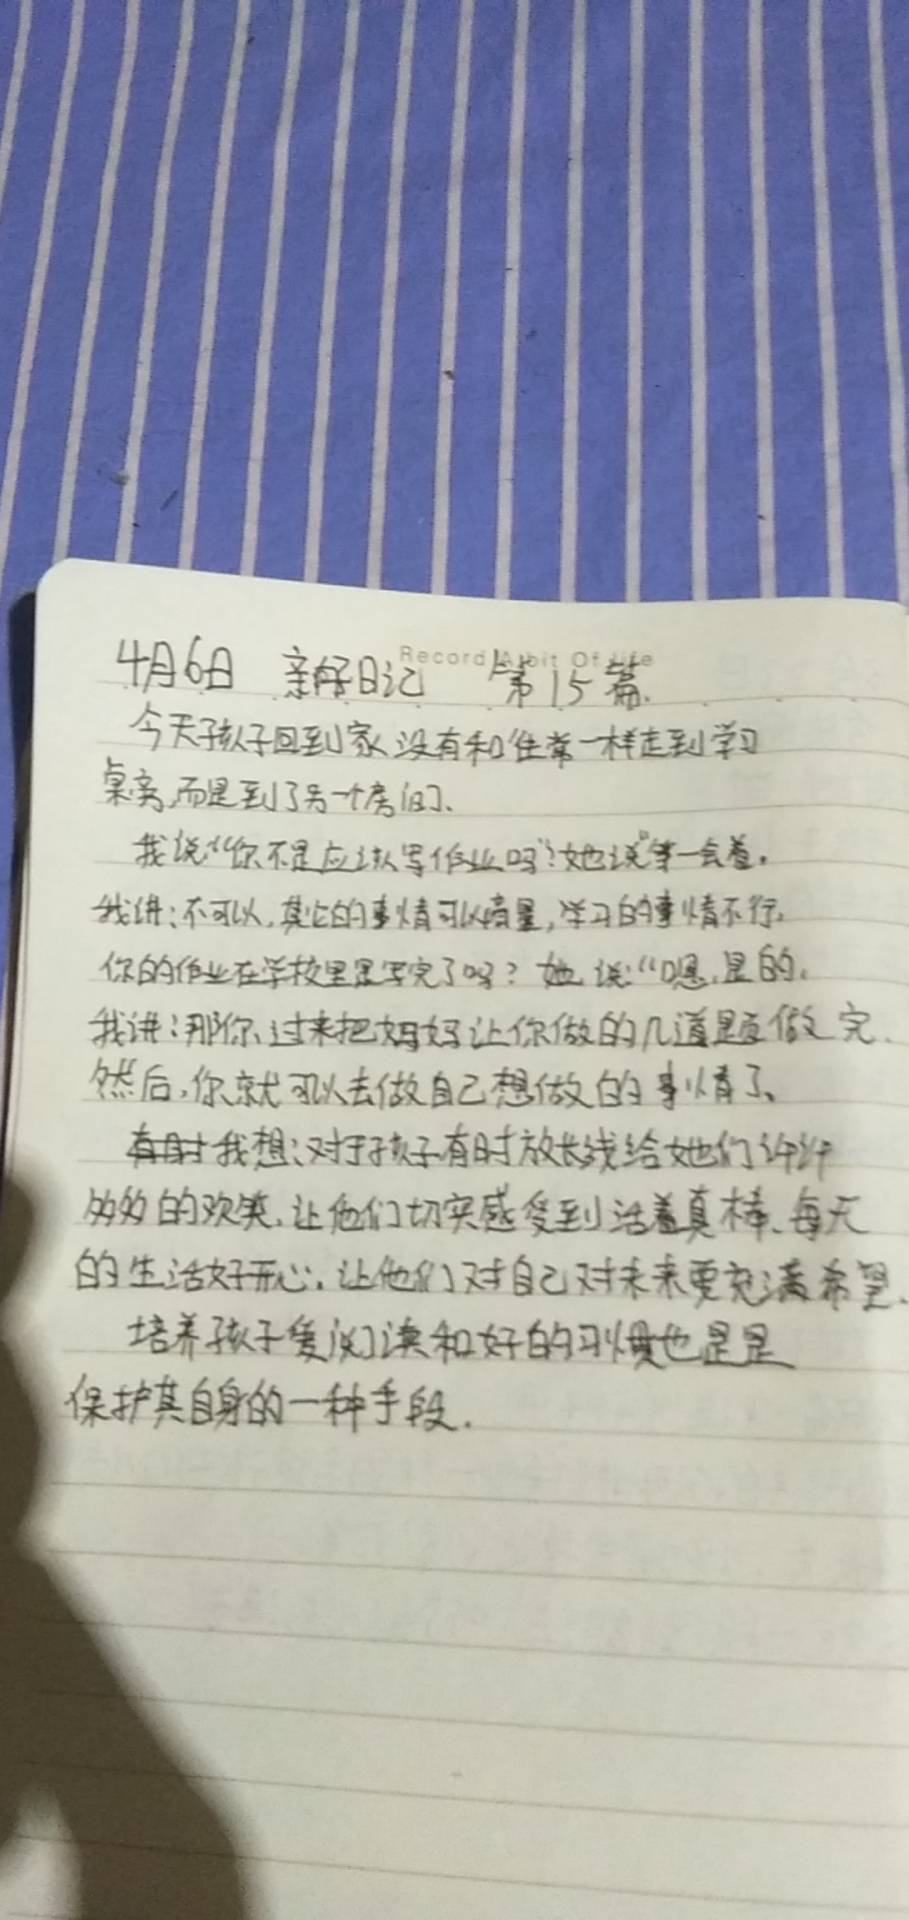 Record A bit Of Life
4月6日 亲子日记 第15篇.
今天孩子回到家、没有和往常一样走到学习
桌旁,而是到了另一个房间、
我说:“你不是应该写作业吗”?她说“等一会着。
我讲:不可以,其它的事情可以商量,学习的事情不行,
你的作业在学校里是写完了吗? 她说:“嗯,是的,
我讲:那你过来把妈妈让你做的几道题做完、
然后,你就可以去做自己想做的事情了、
我想:对于孩子有时放长线给她们许许
多多的欢笑、让他们切实感受到活着真棒、每天
的生活好开心,让他们对自己对未来更充满希望、
培养孩子爱阅读和好的习惯也是是
保护其自身的一种手段.